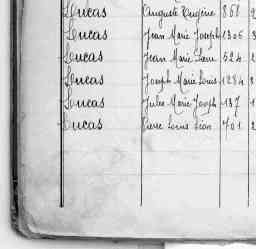 Lucas Auguste Eugène 868 2
Lucas Jean Marie Joseph 1306 3
Lucas Jean Marie 524 2
Lucas Joseph Marie Louis 1284 2
Lucas Jules Marie Joseph 137 1
Lucas Pierre Louis Léon 701 2